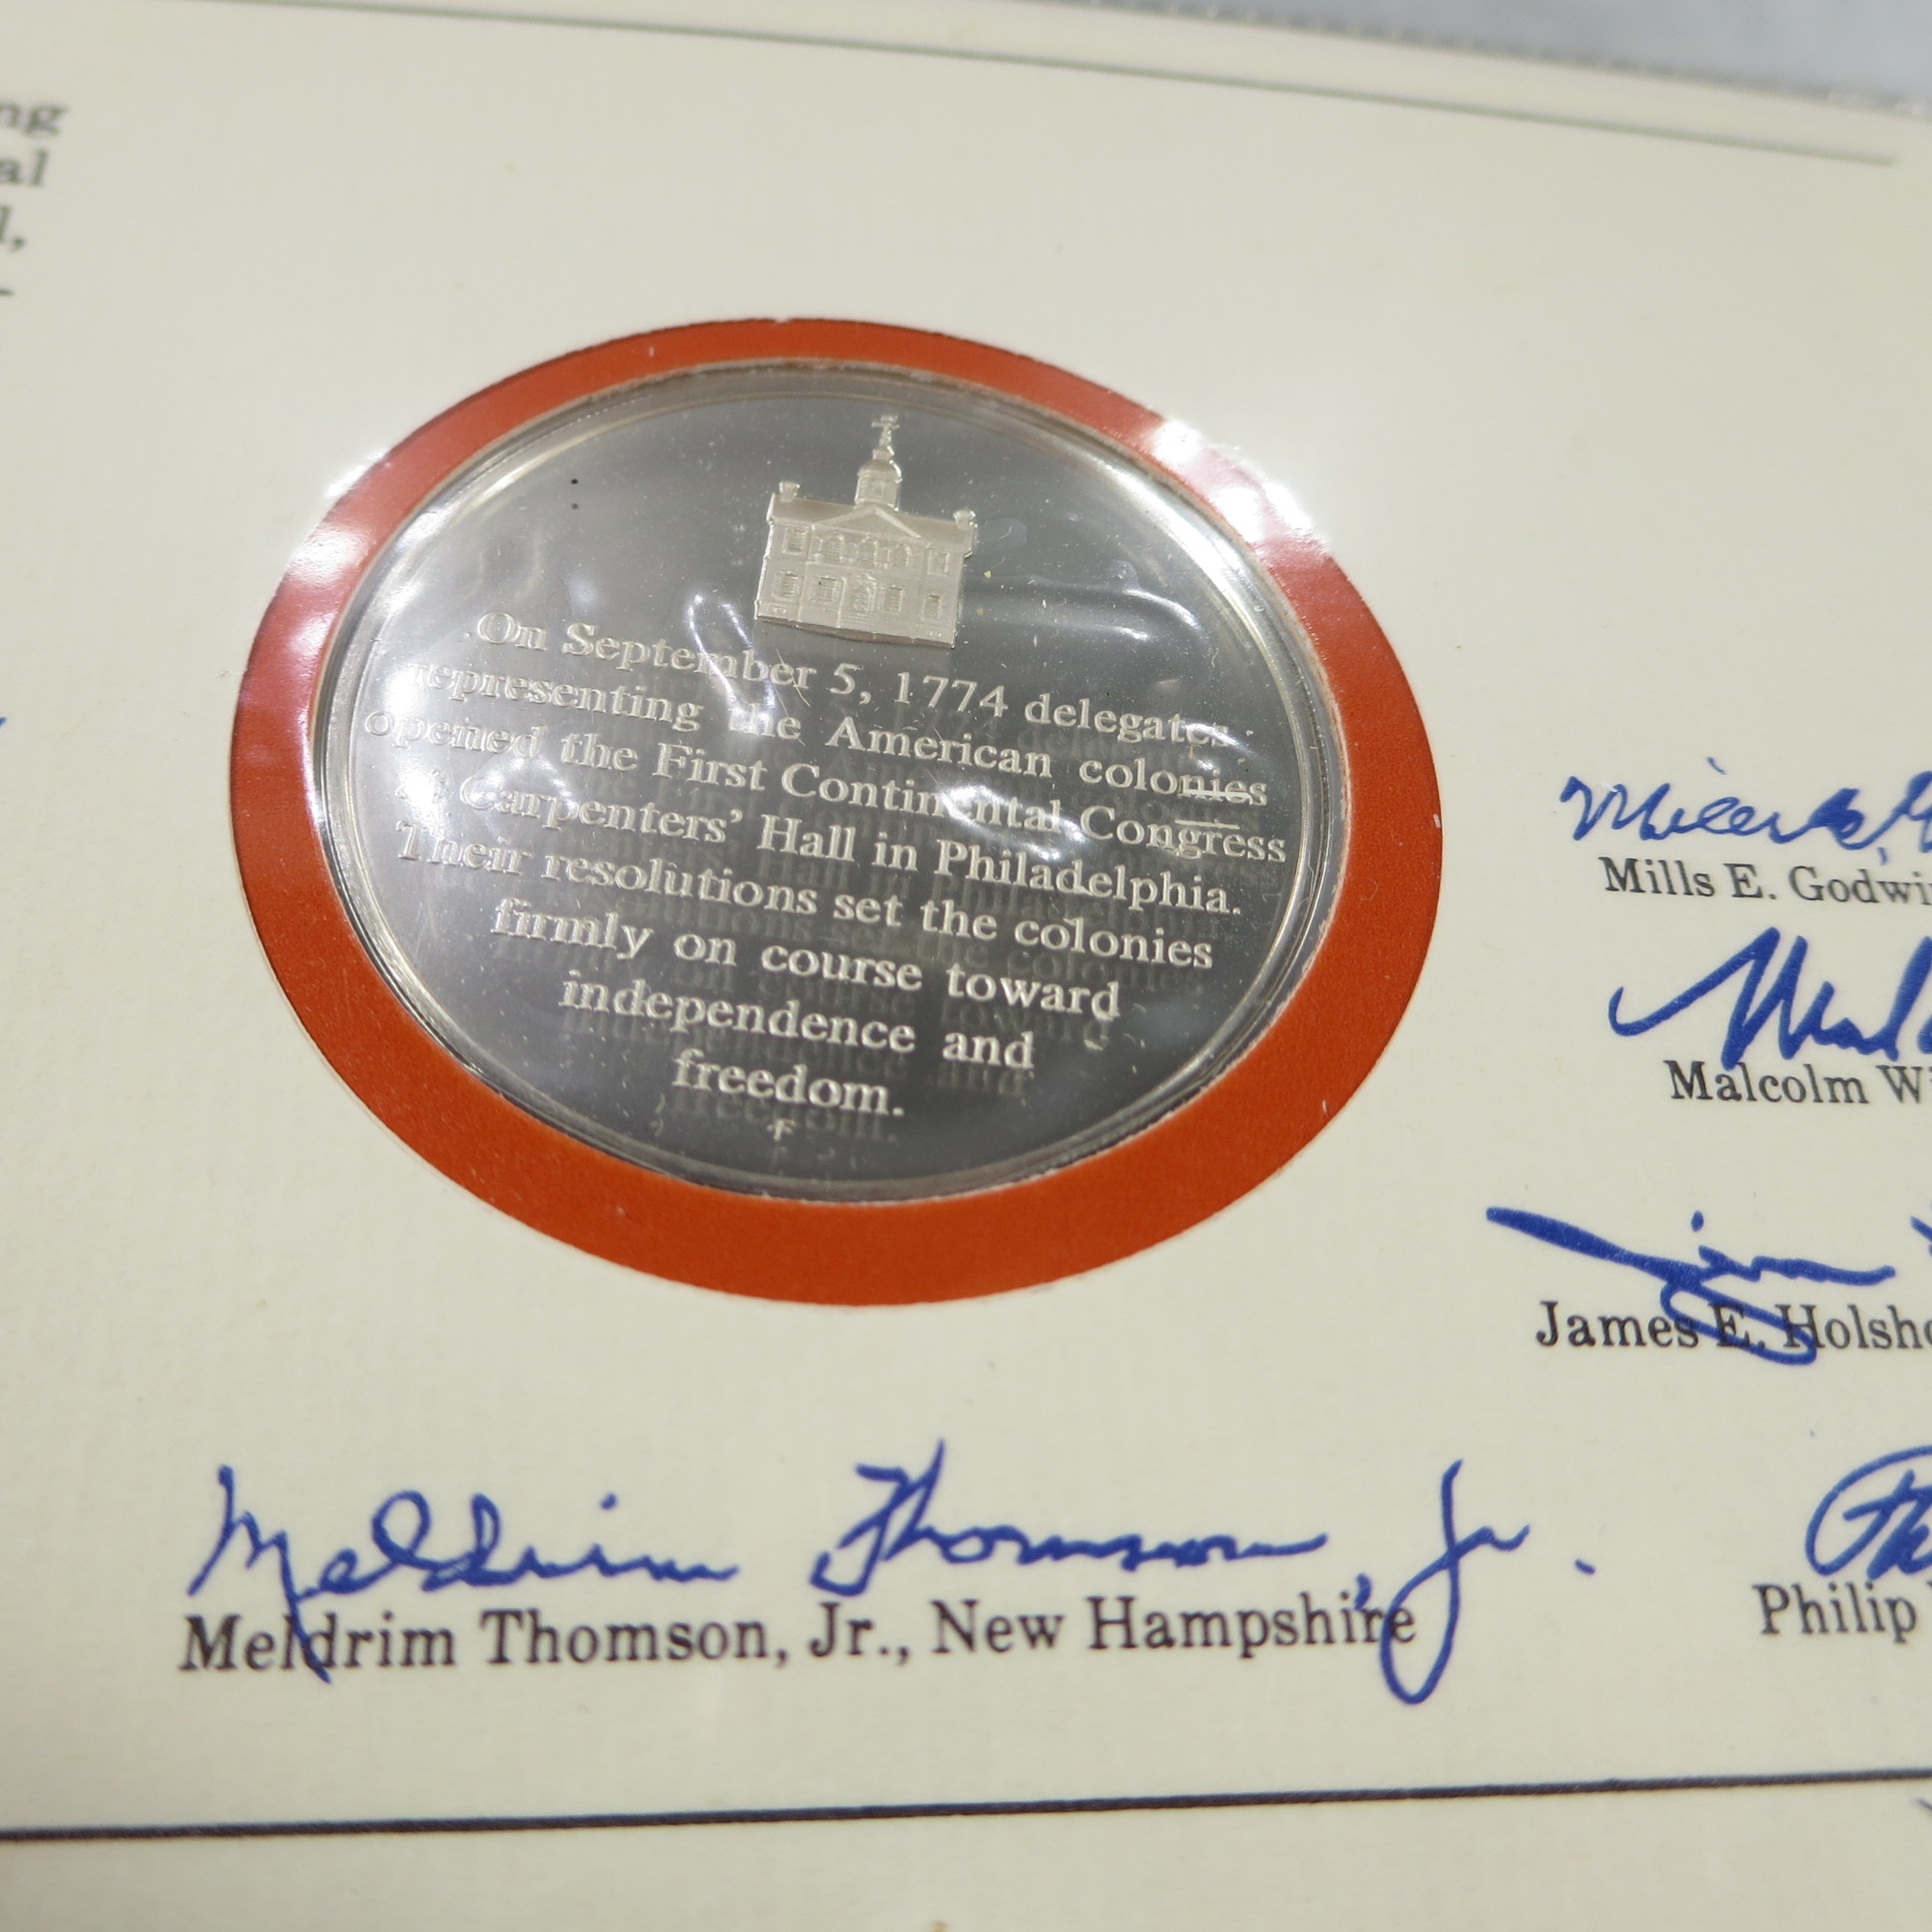 ng
al
l,
On September 5, 1774 delegates
representing the American colonies
opened the First Continental Congress
at Carpenters' Hall in Philadelphia.
Their resolutions set the colonies
firmly on course toward
independence and
freedom.
Mills E. Godwi
Malcolm Wi
James E. Holsho
Meldrim Thomson, Jr.
Meldrim Thomson, Jr., New Hampshire
Philip